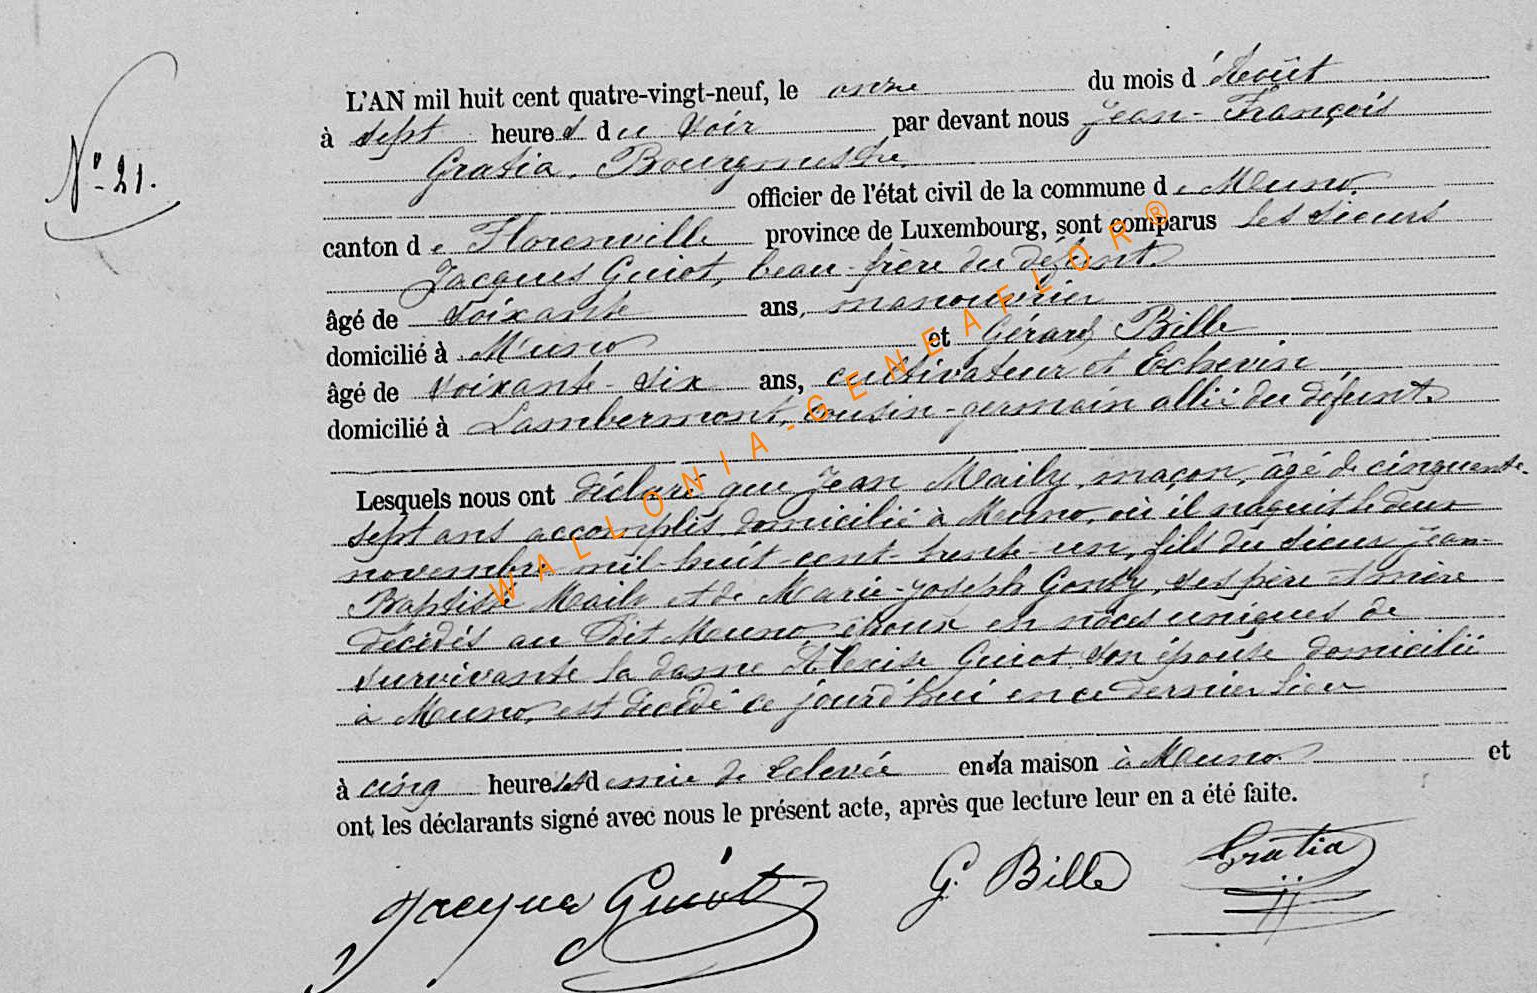 L'AN mil huit cent quatre-vingt-neuf, le onze du mois d'Août
N° 21.
à sept heures du soir par devant nous Jean-François
Gratia, Bourgmestre,
officier de l'état civil de la commune de Muno,
canton de Florenville province de Luxembourg, sont comparus les sieurs
Jacques Guiot, beau-frère du défunt
âgé de soixante ans, manouvrier
domicilié à Muno et Gérard Bille
âgé de soixante-six ans, cultivateur et Echevin,
domicilié à Lambermont, cousin-germain allié du défunt.
Lesquels nous ont déclaré que Jean Maily, maçon, âgé de cinquante-
sept ans accomplis domicilié à Muno, où il naquit le deux
novembre mil-huit-cent-trente-un, fils du sieur Jean-
Baptiste Maily et de Marie-Joseph Gonty, ses père et mère
décédés au dit Muno époux en nôces uniques de
survivante la dame Guiot son épouse domicilié
à Muno, est décédé ce jourd'hui en ce dernier lieu
à cinq heures et demie de relevée en sa maison à Muno. et
ont les déclarants signé avec nous le présent acte, après que lecture leur en a été faite.
Jacques Guiot G. Bille Gratia
WALLONIA-GENEAFLOR®